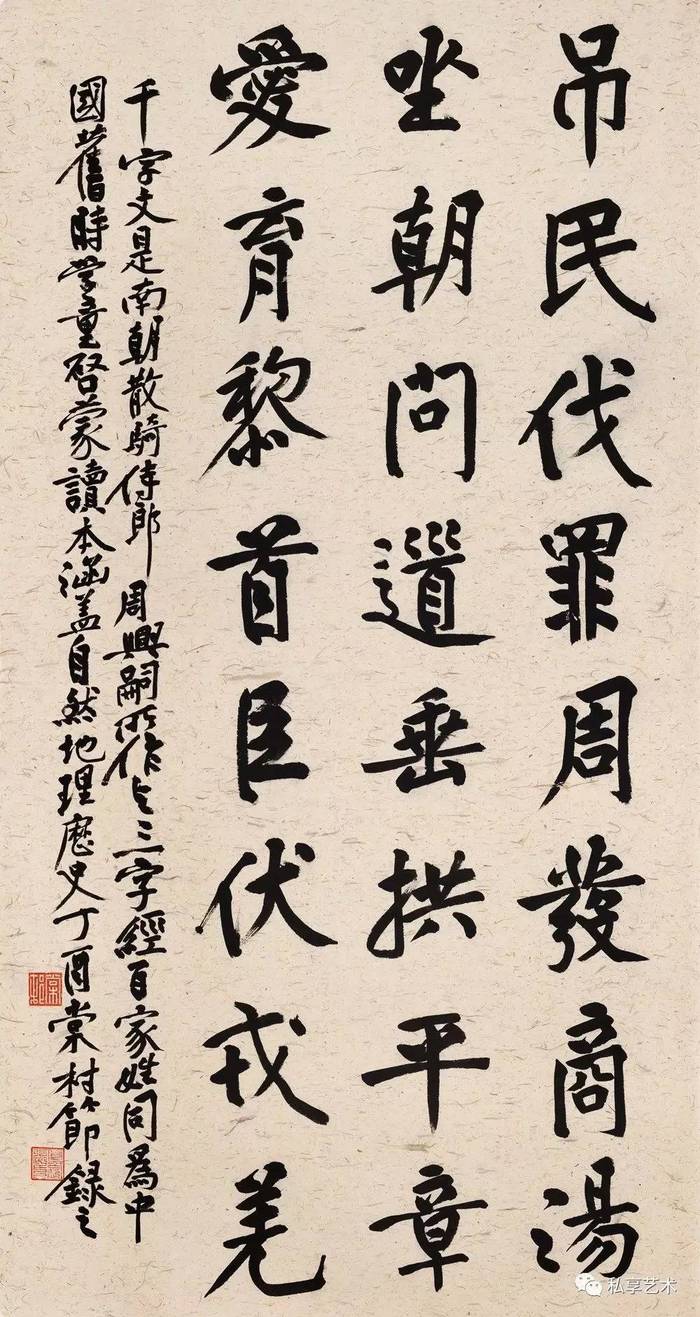 吊民伐罪周發商湯
坐朝問道垂拱平章
愛育黎首臣伏戎羌
千字文是南朝散騎侍郎周興嗣所作與三字經百家姓同爲中
國舊時學童啓蒙讀本涵盖自然地理歷史丁酉棠村節錄之
棠村
私享艺术